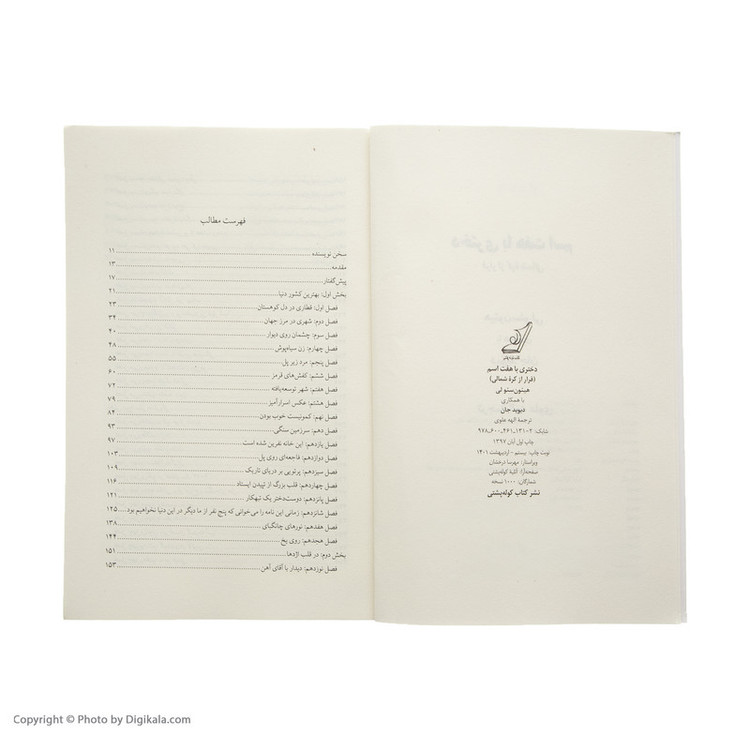 دختری با هفت اسم
(فرار از کرهٔ شمالی)
هیئون‌سئو لی
با همکاری
دیوید جان
ترجمهٔ الهه علوی
شابک: ۲-۱۳۱-۴۶۱-۶۰۰-۹۷۸
چاپ اول آبان ۱۳۹۷
نوبت چاپ: بیستم - اردیبهشت ۱۴۰۱
ویراستار: مهرسا درخشان
صفحه‌آرا: آتلیهٔ کوله‌پشتی
شمارگان: ۱۰۰۰ نسخه
نشر کتاب کوله‌پشتی
فهرست مطالب
سخن نویسنده ۱۱
مقدمه ۱۳
پیش‌گفتار ۱۷
بخش اول: بهترین کشور دنیا ۲۱
فصل اول: قطاری در دل کوهستان ۲۳
فصل دوم: شهری در مرز جهان ۳۴
فصل سوم: چشمان روی دیوار ۴۰
فصل چهارم: زن سیاه‌پوش ۴۸
فصل پنجم: مرد زیر پل ۵۵
فصل ششم: کفش‌های قرمز ۶۰
فصل هفتم: شهر توسعه‌یافته ۷۲
فصل هشتم: عکس اسرارآمیز ۷۹
فصل نهم: کمونیست خوب بودن ۸۴
فصل دهم: سرزمین سنگی ۹۳
فصل یازدهم: این خانه نفرین شده است ۹۷
فصل دوازدهم: فاجعه‌ای روی پل ۱۰۳
فصل سیزدهم: پرتویی بر دریای تاریک ۱۰۹
فصل چهاردهم: قلب بزرگ از تپیدن ایستاد ۱۱۶
فصل پانزدهم: دوست‌دختر یک تبهکار ۱۲۱
فصل شانزدهم: زمانی این نامه را می‌خوانی که پنج نفر از ما دیگر در این دنیا نخواهیم بود ۱۲۵
فصل هفدهم: نورهای چانگبای ۱۳۸
فصل هجدهم: روی یخ ۱۴۴
بخش دوم: در قلب اژدها ۱۵۱
فصل نوزدهم: دیدار با آقای آهن ۱۵۳
Copyright © Photo by Digikala.com